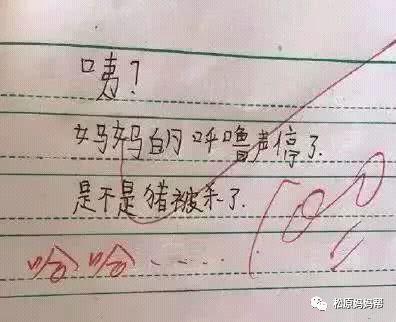 咦？
妈妈的呼噜声停了.
是不是猪被杀了.
哈哈.....
松原妈妈帮